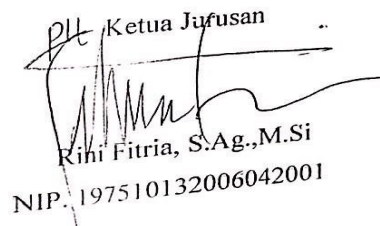 Plt Ketua Jurusan
Rini Fitria, S.Ag.,M.Si
NIP. 197510132006042001